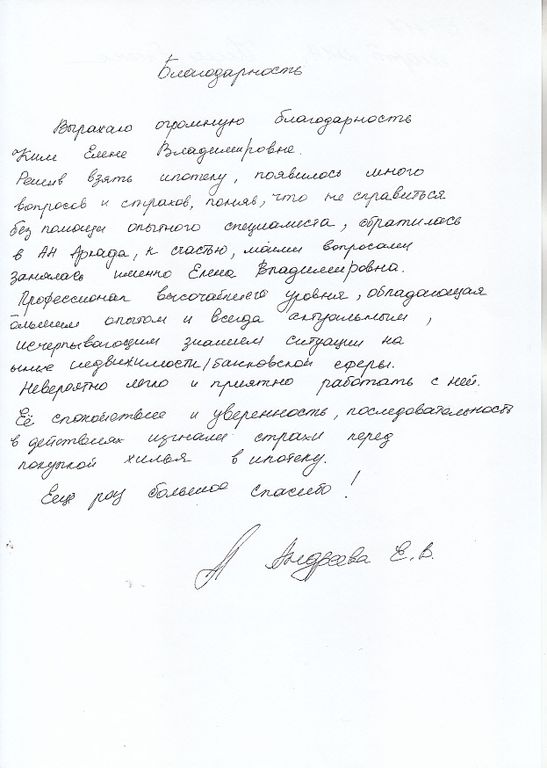 Благодарность
Выражаю огромную благодарность
Ким Елене Владимировне.
Решив взять ипотеку, появилось много
вопросов и страхов, поняв, что не справиться
без помощи опытного специалиста, обратилась
в АН Аркада, к счастью, моими вопросами
занялась именно Елена Владимировна.
Профессионал высочайшего уровня, обладающая
большим опытом и всегда актуальным,
исчерпывающим знанием ситуации на
ынке недвижимости/банковской сферы.
Невероятно легко и приятно работать с ней.
Её спокойствие и уверенность, последовательность
в действиях изгнали страхи перед
покупкой жилья в ипотеку.
Ещё раз большое спасибо!
Андреева Е.В.